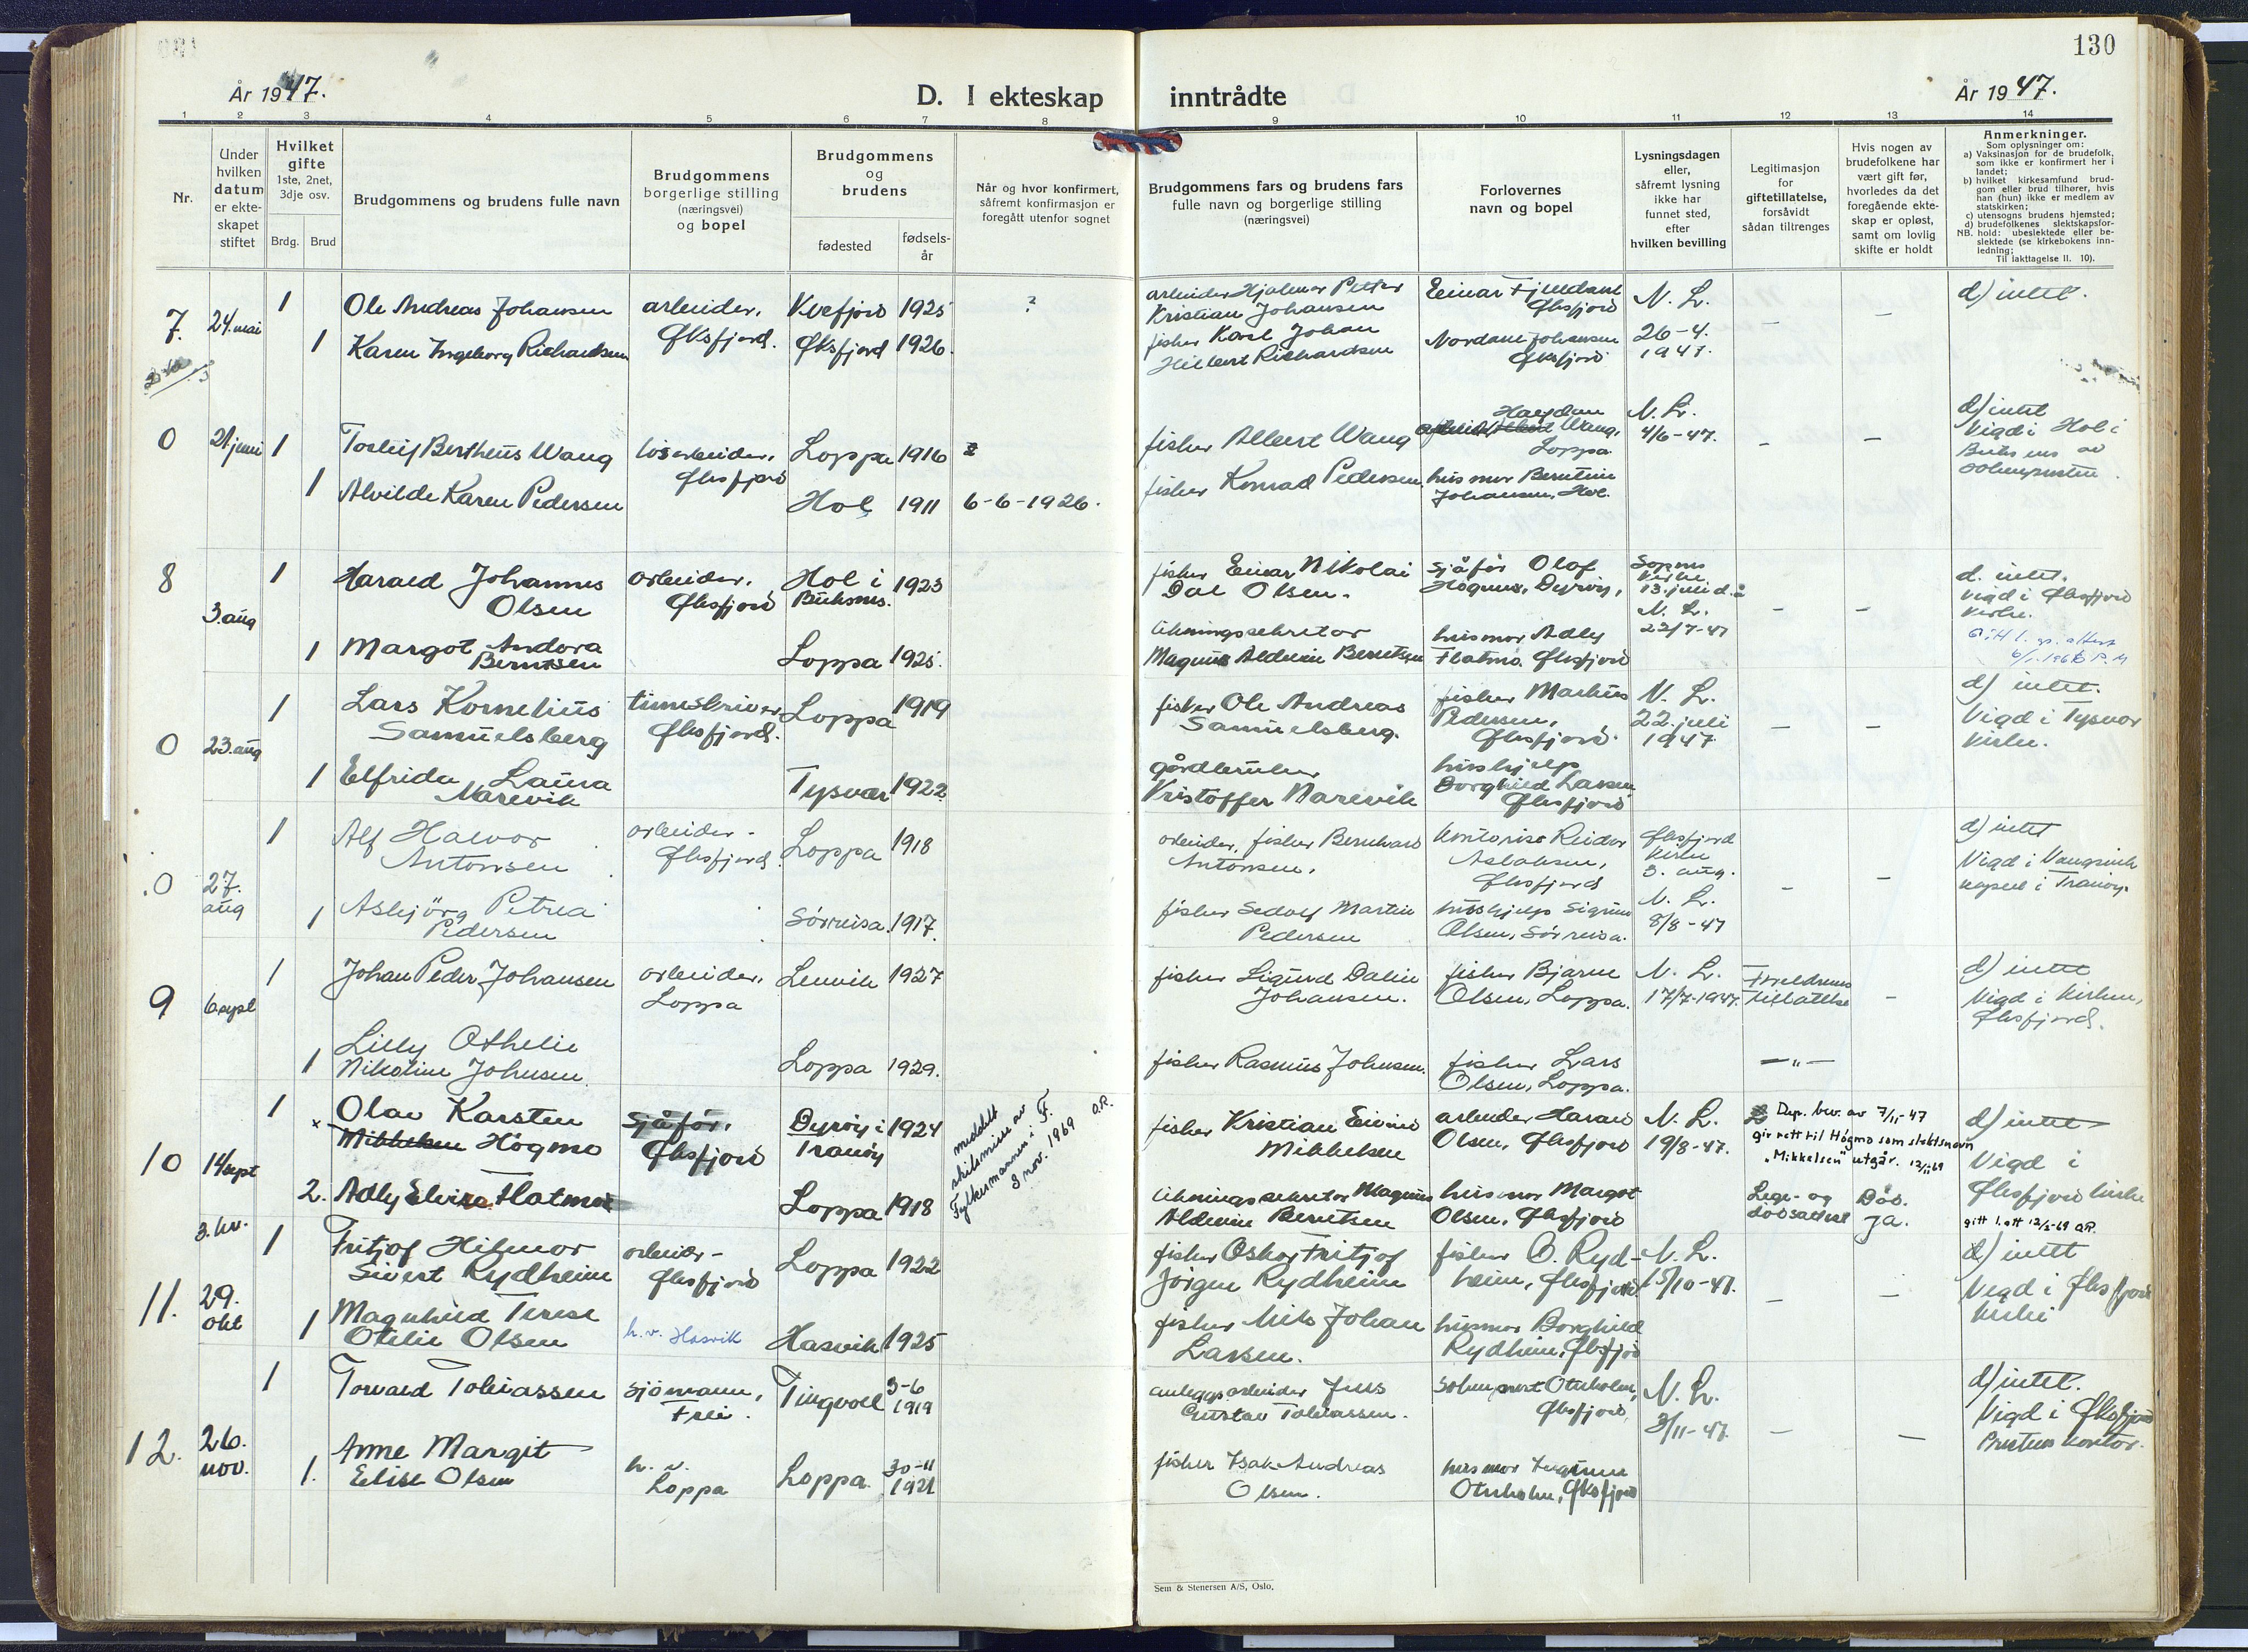 130
År 1947.
D. I ekteskap inntrådte
År 1947.
1 2 3 4 5 6 7 8 9 10 11 12 13 14
Nr.
Under
hvilken
datum
er ekte-
skapet
stiftet
Hvilket
gifte
1ste, 2net,
3dje osv.
Brdg. Brud
Brudgommens og brudens fulle navn
Brudgommens
borgerlige stilling
(næringsvei)
og bopel
Brudgommens
og
brudens
fødested
fødsels-
år
Når og hvor konfirmert,
såfremt konfirmasjon er
foregått utenfor sognet
Brudgommens fars og brudens fars
fulle navn og borgerlige stilling
(næringsvei)
Forlovernes
navn og bopel
Lysningsdagen
eller,
såfremt lysning
ikke har
funnet sted,
efter
hvilken bevilling
Legitimasjon
for
giftetillatelse,
forsåvidt
sådan tiltrenges
Hvis nogen av
brudefolkene har
vært gift før,
hvorledes da det
foregående ekte-
skap er opløst,
samt om lovlig
skifte er holdt
Anmerkninger.
Som oplysninger om:
a) Vaksinasjon for de brudefolk,
som ikke er konfirmert her i
landet;
b) hvilket kirkesamfund brud-
gom eller brud tilhører, hvis
han (hun) ikke er medlem av
statskirken;
c) utensogns brudens hjemsted;
d) brudefolkenes slektskapsfor-
NB. hold: ubeslektede eller be-
slektede (se kirkebokens inn-
ledning;
Til iakttagelse II. 10).
7. 24. mai
1 Ole Andreas Johansen arbeider, Kvefjord 1925 ?
Øksfjord.
1 Karen Ingeborg Richardsen Øksfjord 1926.
arbeider Hjalmar Petter
Kristian Johansen
fisker Karl Johan
Hilbert Richardsen
Einar Fjelldahl
Øksfjord
Nordahl Johansen
Øksfjord
N. L.
26-4.
1947.
d) intet.
0 21 juni
1 Torleif Bertheus Wang løsarbeider, Loppa 1916
Øksfjord
1 Alvilde Karen Pedersen Hol 1911 6-6-1926.
fisker Albert Wang
fisker Konrad Pedersen
Wang,
Loppa
husmor Berntine
Johansen, Hol.
N. L.
4/6-47.
d) intet
Vigd i Hol i
Buksnes av
soknepresten.
8 3. aug
1 Harald Johannes
Olsen
arbeider,
Øksfjord
Hol i
Buksnes.
1923
1 Margot Andora
Berntsen
Loppa 1925.
fisker Einar Nikolai
Dal Olsen.
likningssekretær
Magnus Aldemin Berntsen
sjåfør Olaf
Høgmo, Dyrøy,
husmor Adly
Flatmo, Øksfjord
kirke
13. juli d.å.
N. L.
22/7-47
d. intet.
Vigd i Øksfjord
kirke.
0 23. aug
1 Lars Kornelius
Samuelsberg
timeskriver
Øksfjord.
Loppa 1919
1 Elfrida Laura
Narevik
Tysvær 1922
fisker Ole Andreas
Samuelsberg.
gårdbruker
Kristoffer Narevik
fisker Markus
Pedersen,
Øksfjord.
hushjelp
Borghild Larsen
Øksfjord
N. L.
22. juli
1947
d) intet.
Vigd i Tysvær
kirke.
0 27.
aug
1 Alf Halvor
Antonsen
arbeider -
Øksfjord.
Loppa 1918
1 Asbjørg Petrea
Pedersen
Sørreisa. 1917.
arbeider, fisker Bernhard
Antonsen.
fisker Sedolf Martin
Pedersen
kontorist Reidar
Aslaksen,
Øksfjord
hushjelp Sigrun
Olsen, Sørreisa.
Øksfjord
kirke
3. aug.
N. L.
8/8-47
d) intet
Vigd i Vangsvik
kapell i Tranøy.
9 6. sept
1 Johan Peder Johansen arbeider, Lenvik 1927
Loppa
1 Lilly Othelie
Nikoline Johnsen
Loppa 1929.
fisker Sigurd Dalin
Johansen.
fisker Rasmus Johnsen.
fisker Bjarne
Olsen, Loppa.
fisker Lars
Olsen, Loppa.
N. L.
17/7-1947.
Foreldrenes
tillatelse
—„—
d) intet
Vigd i kirken,
Øksfjord.
10 14 sept
1 Olav Karsten
x Mikkelsen Høgmo
Sjåfør,
Øksfjord
Dyrøy i
Tranøy
1924
2. Adly Elvira Flatmo Loppa 1918
meddelt
skilsmisse av
Fylkesmannen i F.
3 nov. 1969 O.R.
fisker Kristian Eivind
Mikkelsen
likningssekretær Magnus
Aldemin Berntsen
arbeider Harald
Olsen, Øksfjord
husmor Margot
Olsen, Øksfjord
N. L.
19/8-47.
Dep. bev. av 7/11-47
gir rett til Høgmo som slektsnavn
„Mikkelsen" utgår. 12/11 69
Lege- og
dødsattest
Død.
Ja.
d) intet
Vigd i
Øksfjord kirke
gitt 1. att 12/2-69 O.R.
3. kv.
11. 29.
okt
1 Fritjof Hilmar
Sivert Rydheim
arbeider -
Øksfjord
Loppa 1922
1 Magnhild Terese
Otelie Olsen
h. v. Hasvik Hasvik 1925
fisker Oskar Fritjof
Jørgen Rydheim
fisker Nils Johan
Larsen.
fisker O. Ryd-
heim, Øksfjord
husmor Borghild
Rydheim, Øksfjord
N. L.
15/10-47.
d) intet
Vigd i Øksfjord
kirke
12. 26.
nov.
1 Torvald Tobiassen sjømann,
Frei.
Tingvoll 3-6
1919
1. Anne Margit
Elise Olsen
h. v.
Loppa
Loppa 30-11
1921
anleggsarbeider Jens
Gustav Tobiassen.
fisker Isak Andreas
Olsen.
Otterholm,
Øksfjord,
husmor
Otterholm, Øksfjord
N. L.
3/11-47.
d) intet.
Vigd i Øksfjord
Prestens kontor.
Sem & Stenersen A/S, Oslo.